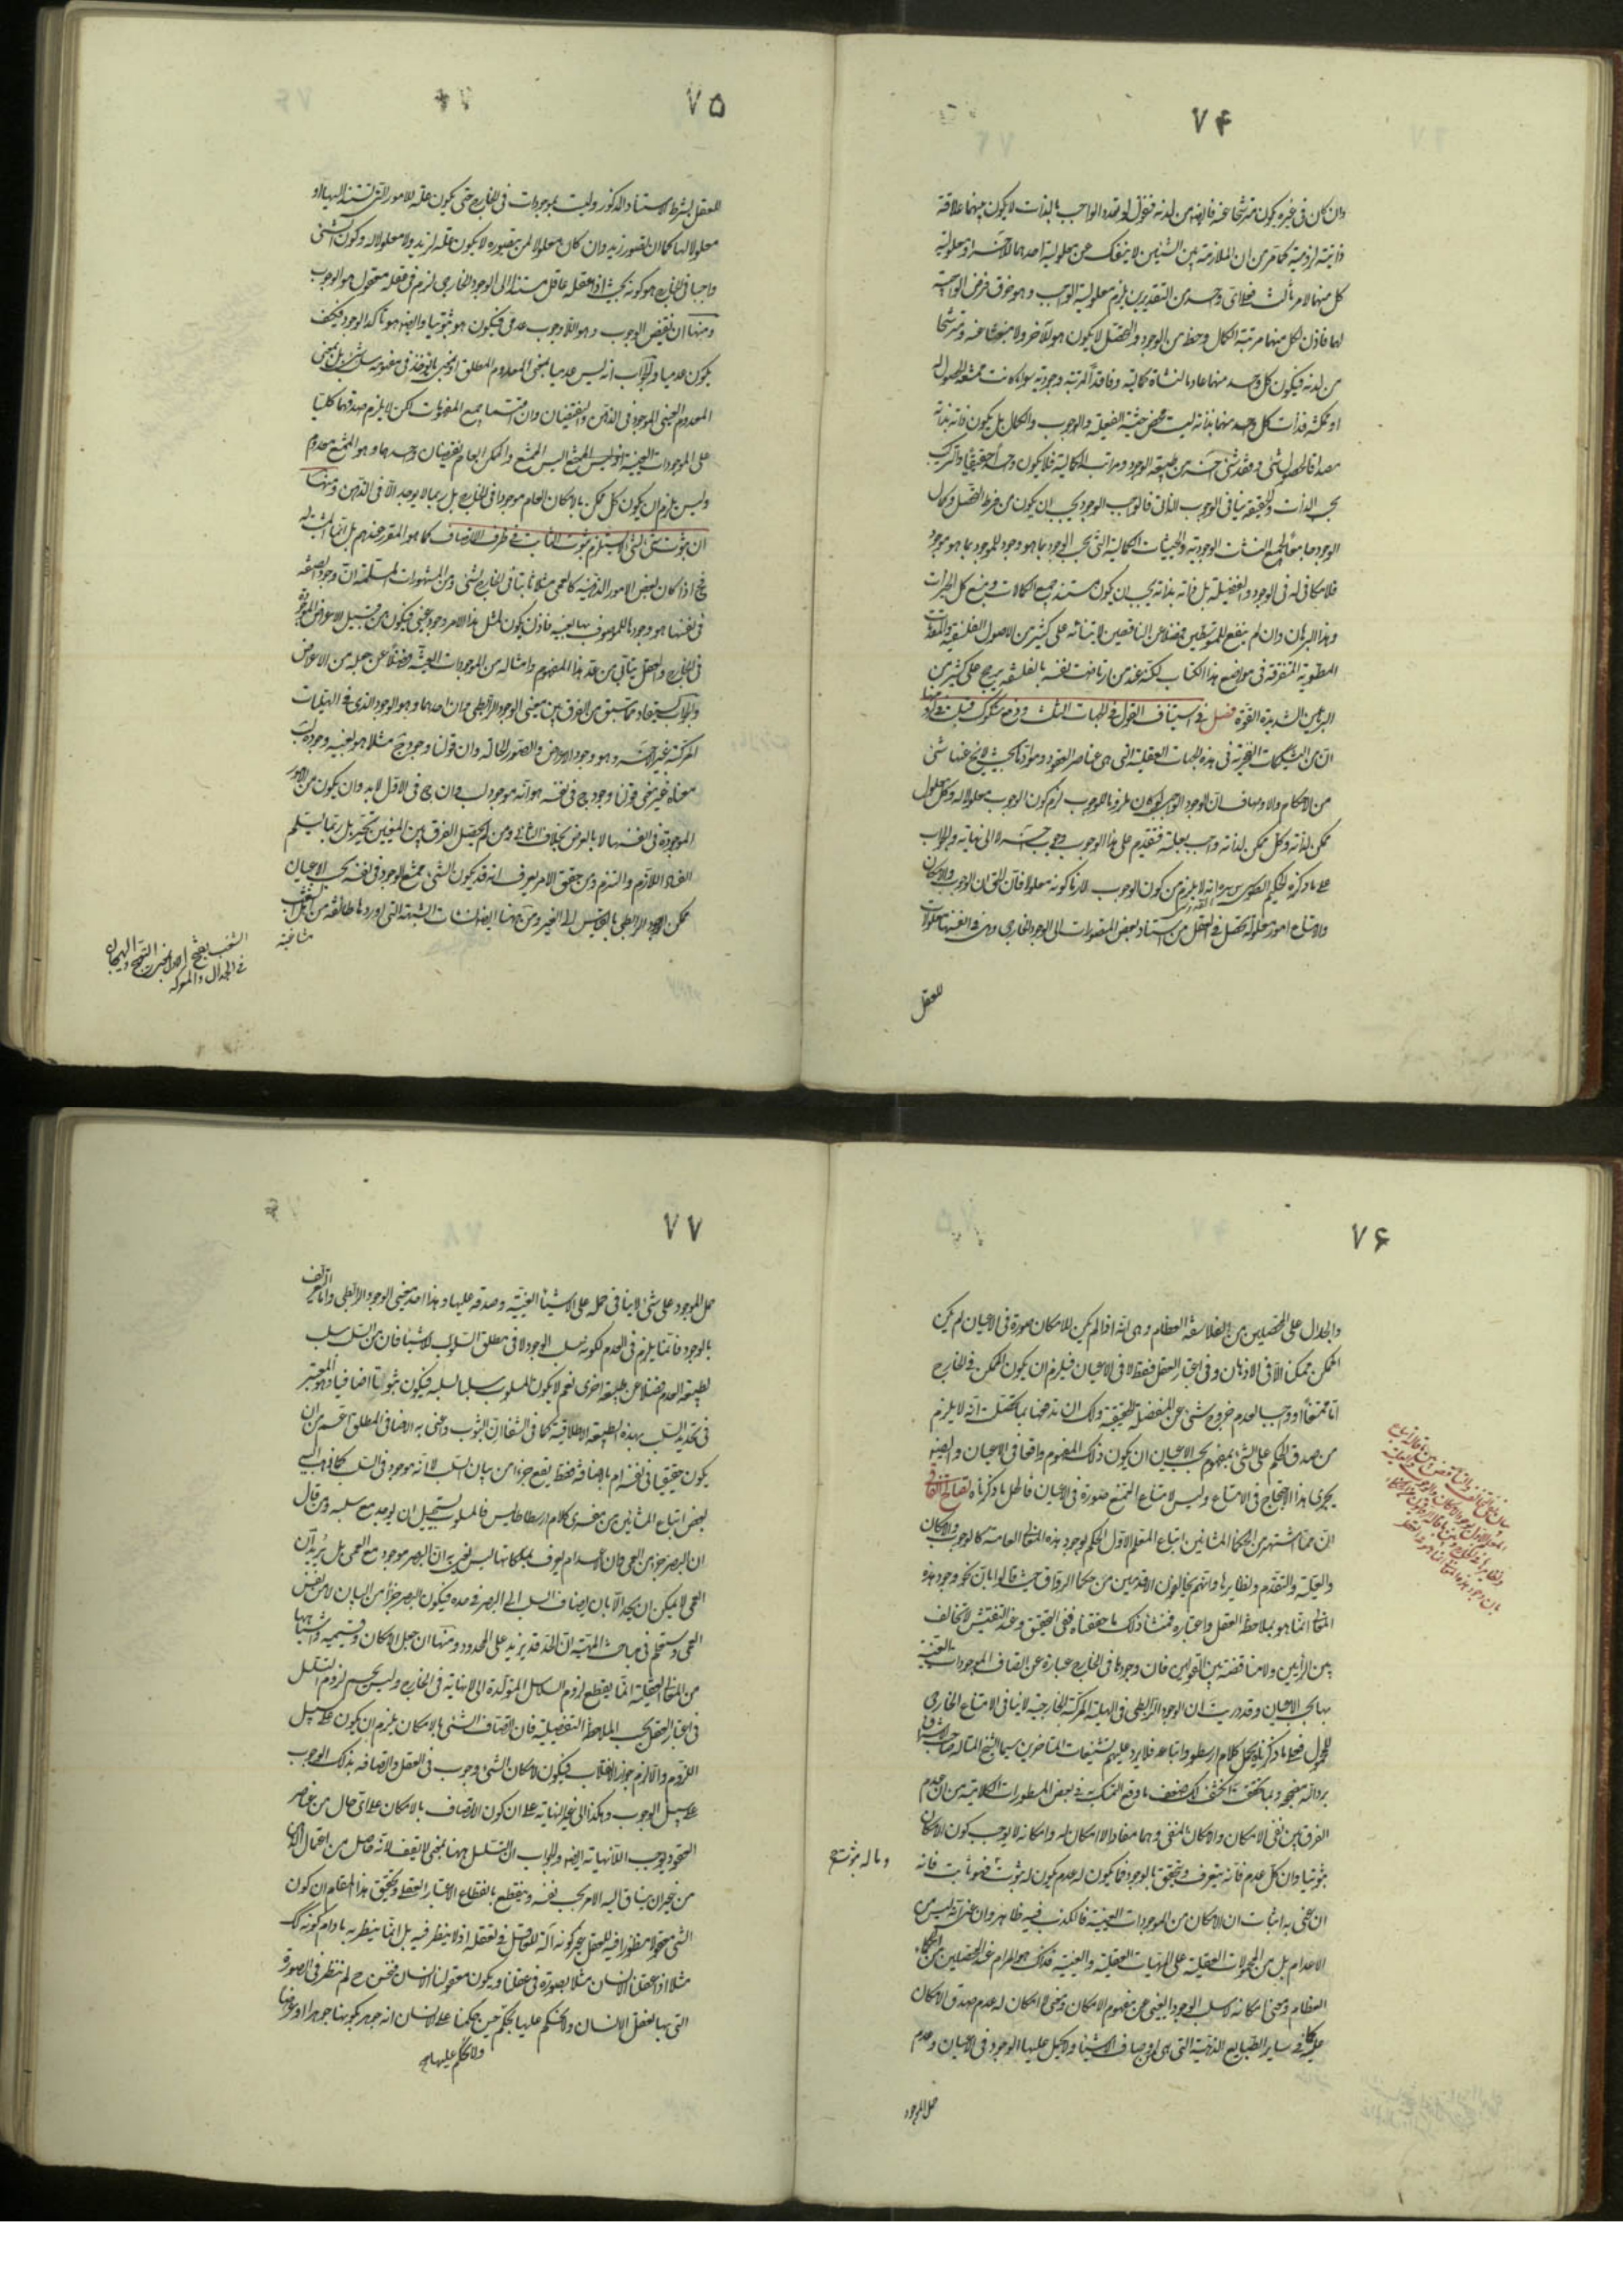 ۷۴
وان كان فى غيره يكون مترشحا عنه فايضا من لدنه فنقول لو تعدد الواجب بالذات لا يكون بينهما علاقة
ذاتية لزومية كما مر من ان الملازمة بين الشيئين لا ينفك عن معلولية احدهما للآخر او معلولية
كل منهما لامر ثالث فعلى اى واحد من التقديرين يلزم معلولية الواجب وهو خرق فرض الواجبية
لهما فاذن لكل منهما مرتبة من الكمال وحظ من الوجود والتحصل لا يكون هو للآخر ولا منبعثا عنه ومترشحا
من لدنه فيكون كل واحد منهما عادما لنشأة كمالية وفاقدا لمرتبة وجودية سواء كانت ممتنعة الحصول له
او ممكنة فذات كل واحد منهما بذاته ليست محض حيثية الفعلية والوجوب والكمال بل يكون ذاته بذاته
مصداقا لحصول شئ وفقد شئ آخر من طبيعة الوجود ومراتبه الكمالية فلا يكون واحدا حقيقيا والتركيب
بحسب الذات والحقيقة ينافى الوجوب الذاتى فالواجب الوجود يجب ان يكون من فرط التحصل وكمال
الوجود جامعا لجميع النشئات الوجودية والحيثيات الكمالية التى بحسب الوجود بما هو وجود للموجود بما هو موجود
فلا مكافئ له فى الوجود والفضيلة بل ذاته بذاته يجب ان يكون مستند جميع الكمالات ومنبع كل الخيرات
وهذا البرهان وان لم ينفع للمتوسطين فضلا عن الناقصين لابتنائه على كثير من الاصول الفلسفية والمقدمات
المطوية المتفرقة فى مواضع هذا الكتاب لكنه عند من ارتاضت نفسه بالفلسفة يرجح على كثير من
البراهين الشديدة القوة فصل فى استيناف القول فى الجهات الثلث ودفع شكوك قيلت فى لزومها
ان من المشككات الفخرية فى هذه الجهات العقلية التى هى عناصر العقود وموادها بحيث لا يخ عنها شئ
من الاحكام والاوصاف ان الوجود الواجبى لو كان ملزوما للوجوب لزم كون الوجوب معلولا له وكل معلول
ممكن لذاته وكل ممكن لذاته واجب بعلته فتقدم على هذا الوجوب وجوب آخر لا الى نهاية والجواب
على ما ذكره الحكيم الطوسى ره انه لا يلزم من كون الوجوب لازما كونه معلولا فان الحق ان الوجوب والامكان
والامتناع امور معقولة تحصل فى العقل من استناد بعض المتصورات الى الوجود الخارجى وهى فى انفسها معلولات
للعقل
۷۵
للعقل بشرط الاستناد المذكور وليست بموجودات فى الخارج حتى يكون علة للامور التى تستند اليها او
معلولا لها كما ان تصور زيد وان كان معلولا لمن يتصوره لا يكون علة لزيد ولا معلولا له وكون الشئ
واجبا فى الخارج هو كونه بحيث اذا عقله عاقل مستندا الى الوجود الخارجى لزم فى عقله معقول هو الوجوب
ومنها ان نقيض الوجوب وهو اللاوجوب عدمى فيكون هو ثبوتيا وايضا هو تاكد الوجود فكيف
يكون عدميا والجواب انه ليس عدميا بمعنى المعدوم المطلق او بمعنى ما يؤخذ فى مفهومه سلب شئ بل بمعنى
المعدوم العينى الموجود فى الذهن والنقيضان وان اقتسما جميع المفهومات لكن لا يلزم صدقهما كليا
على الموجودات العينية او ليس الممتنع اليس الممتنع والممكن العام نقيضان واحدهما وهو الممتنع معدوم
وليس يلزم ان يكون كل ممكن بالامكان العام موجودا فى الخارج بل ربما لا يوجد الا فى الذهن ومنها
ان ثبوت شئ لشئ لا يستلزم ثبوت الثابت فى ظرف الاتصاف كما هو المقرر عندهم بل انما المثبت له
فح اذا كان بعض الامور الذهنية كالعمى مثلا ثابتا فى الخارج لشئ ومن المشهورات المسلمة ان وجود الصفة
فى نفسها هو وجودها للموصوف بها بعينه فاذن يكون لمثل هذا الامر وجود عينى فيكون من قبيل الاعراض الموجودة
فى الخارج والعقل يتأبى من عد هذا المفهوم وامثاله من الموجودات العينية فضلا عن جعله من الاعراض
والجواب يستفاد مما سبق من الفرق بين معنى الوجود الرابطى وان احدهما وهو الوجود الذى فى الهليات
المركبة غير الآخر وهو وجود الاعراض والصور الحالة وان قولنا وجود ج مثلا هو بعينه وجوده لب
معناه غير معنى قولنا وجود ج فى نفسه هو انه موجود لب وان ج فى الاول لابد وان يكون من الامور
الموجودة فى انفسها لا بالعرض بخلاف الثانى ومن لم يحصل الفرق بين المعنيين تحير بل ربما يسلم
الفساد اللازم والتزم ومن حقق الامر يعرف انه قد يكون الشئ ممتنع الوجود فى نفسه بحسب الاعيان
ممكن الوجود الرابطى بالقياس الى الغير ومن ههنا ايضا نشات الشبهة التى اوردها طائفة من اهل الشغب
مشاغبة
الشغب بفتح
فى الجدال والمعركة
۷۶
والجدال على المحصلين من الفلاسفة العظام وهى انه اذا لم يكن للامكان صورة فى الاعيان لم يكن
الممكن ممكنا الا فى الاذهان وفى اعتبار العقل فقط لا فى الاعيان فيلزم ان يكون الممكن فى الخارج
اما ممتنعا او واجبا لعدم خروج شئ عن المنفصلة الحقيقية ولك ان تدفعها بما تحققت انه لا يلزم
من صدق الحكم على الشئ بمفهوم بحسب الاعيان ان يكون ذلك المفهوم واقعا فى الاعيان وايضا
يجرى هذا الاحتجاج فى الامتناع وليس لامتناع الممتنع صورة فى الاعيان فالحل ما ذكرناه تصالح اتفاقى
ان مما اشتهر من الحكماء المشائين اتباع المعلم الاول الحكم بوجود هذه المعانى العامة كالوجوب والامكان
والعلية والتقدم ونظايرها وانهم يخالفون الاقدمين من حكماء الرواق حيث قالوا بان نحو وجود هذه
المعانى انما هو بملاحظة العقل واعتباره فمنشأ ذلك ما حققناه ففى التحقيق وعند التفتيش لا تخالف
بين الرأيين ولا مناقضة بين القولين فان وجودها فى الخارج عبارة عن اتصاف الموجودات العينية
بها بحسب الاعيان وقد دريت ان الوجود الرابطى فى الهلية المركبة الخارجية لا ينافى الامتناع الخارجى
للمحمول فعلى ما ذكرناه يحمل كلام ارسطو واتباعه فلا يرد عليهم تشنيعات المتأخرين سيما الشيخ المتأله صاحب الاشراق
وبما تحققت انكشف لك ضعف ما وقع التمسك به فى بعض المسطورات الكلامية من ان عدم
الفرق بين نفى الامكان والامكان المنفى وهما مفاد الا امكان له وامكانه لا يوجب كون الامكان
ثبوتيا وان كل عدم فانه يتعرف ويتحقق بالوجود فما يكون له عدم يكون له ثبوت فهو ثابت فانه
وما له ثبوت
ان عنى به اثبات ان الامكان من الموجودات العينية فالكذب فيه ظاهر وان عنى انه ليس من
الاعدام بل من المحمولات العقلية على المهيات العقلية والعينية فذلك هو المرام عند المحصلين من الحكماء
العظام ومعنى امكانه لا سلب الوجود العينى عن مفهوم الامكان ومعنى لا امكان له عدم صدق الامكان
عليه كما فى ساير الطبايع الذهنية التى هى اوصاف الاشياء ولا يحمل عليها الوجود فى الاعيان وعدم
حمل الموجود
۷۷
حمل الموجود على شئ لا ينافى حمله على الاشياء العينية وصدقه عليها وهذا احد معنيى الوجود الرابطى واما التعرف
بالوجود فانما يلزم فى العدم لكونه سلب الوجود لا فى مطلق السلوب للاشياء فان من السلب سلب
لطبيعة العدم فضلا عن طبيعة اخرى نعم لا يكون المسلوب سلبا لسلبه فيكون ثبوتا اضافيا وهو المعتبر
فى تحديد السلب بهذه الطبيعة الاطلاقية كما فى الشفا ان الثبوت وعنى به الاضافى المطلق اعم من ان
يكون حقيقيا فى نفسه ام بالاضافة فقط يقع جزءا من بيان السلب لا انه موجود فى السلب كما ذهب اليه
بعض اتباع المشائين من مفسرى كلام ارسطاطاليس فالمسلوب يستحيل ان يوجد مع سلبه ومن قال
ان البصر جزء من العمى وان الاعدام يعرف بملكاتها ليس يعنى به ان البصر موجود مع العمى بل يريد ان
العمى لا يمكن ان يحد الا بان يضاف السلب الى البصر فى حده فيكون البصر جزءا من البيان لا من نفس
العمى وستعلم فى مباحث المهية ان الحد قد يزيد على المحدود ومنها ان جعل الامكان وقسيميه واشباهها
من المعانى العقلية انما يقطع لزوم السلاسل المتولدة الى لا نهاية فى الخارج وليس يحسم لزوم التسلسل
فى اعتبار العقل بحسب الملاحظة التفصيلية فان اتصاف الشئ بالامكان يلزم ان يكون على سبيل
اللزوم والا لزم جواز الانقلاب فيكون لامكان الشئ وجوب فى العقل ولاتصافه بذلك الوجوب
على سبيل الوجوب وهكذا الى غير النهاية على ان كون الاتصاف بالامكان على اى حال من عناصر
العقود يوجب اللانهاية ايضا والجواب ان التسلسل ههنا بمعنى لا يقف لانه حاصل من اعتمال الذهن
من غير ان ينساق اليه الامر بحسب نفسه وينقطع بانقطاع الاعتبار العقلى وتحقيق هذا المقام ان كون
الشئ معقولا منظورا فيه للعقل غير كونه آلة للعاقل فى تعقله اذ لا ينظر فيه بل انما ينظر به ما دام كونه كك
مثلا اذا عقلنا الانسان مثلا بصورة فى عقلنا ويكون معقولنا الانسان فنحن ح لم ننظر فى الصورة
التى بها نعقل الانسان ولا نحكم عليها بحكم حين حكمنا على الانسان انه جوهر بكونها جوهرا او عرضا
ولا نحكم عليها